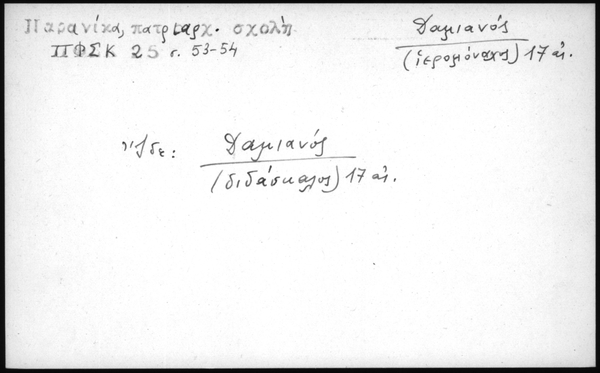 Παρανίκα, πατριαρχ. σχολή
ΠΦΣΚ 25 σ. 53-54
Δαμιανός
(ἱερομόναχος) 17 αἰ.
Ἴδε: Δαμιανός
(διδάσκαλος) 17 αἰ.